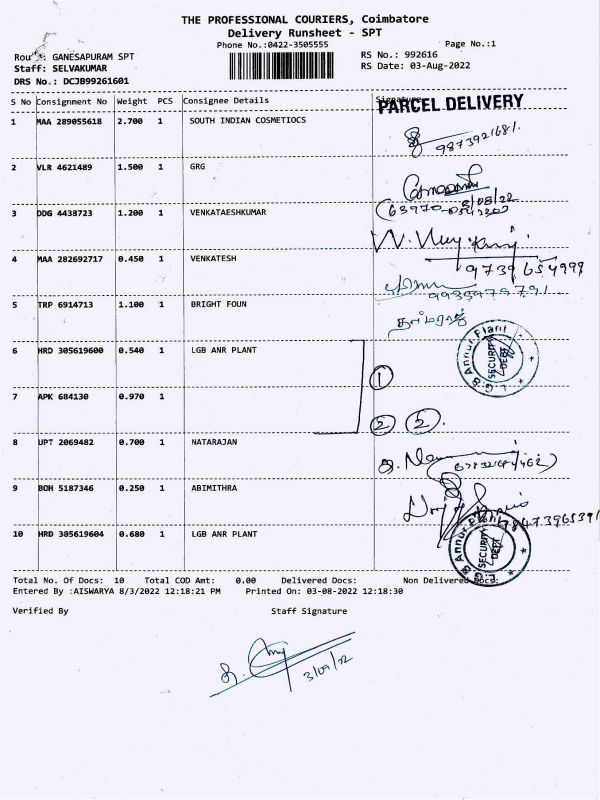 THE PROFESSIONAL COURIERS, Coimbatore
Delivery Runsheet - SPT
Phone No.:0422-3505555 Page No.:1
GANESAPURAM SPT RS No.: 992616
Staff: SELVAKUMAR RS Date: 03-Aug-2022
DRS No.: DCJB99261601
S No Consignment No Weight PCS Consignee Details Signature
PARCEL DELIVERY
1 MAA 289055618 2.700 1 SOUTH INDIAN COSMETIOCS
9873921681.
2 VLR 4621489 1.500 1 GRG
3 DDG 4438723 1.200 1 VENKATAESHKUMAR
4 MAA 282692717 0.450 1 VENKATESH
9739654999
5 TRP 6914713 1.100 1 BRIGHT FOUN
6 HRD 305619600 0.540 1 LGB ANR PLANT
L.G.B Annur Plant
SECURITY
DEPT
1
7 APK 684130 0.970 1
2 2
8 UPT 2069482 0.700 1 NATARAJAN
9 BOH 5187346 0.250 1 ABIMITHRA
10 HRD 305619604 0.680 1 LGB ANR PLANT
L.G.B Annur Plant
SECURITY
DEPT
Total No. Of Docs: 10 Total COD Amt: 0.00 Delivered Docs: Non Delivered Docs:
Entered By :AISWARYA 8/3/2022 12:18:21 PM Printed On: 03-08-2022 12:18:30
Verified By Staff Signature